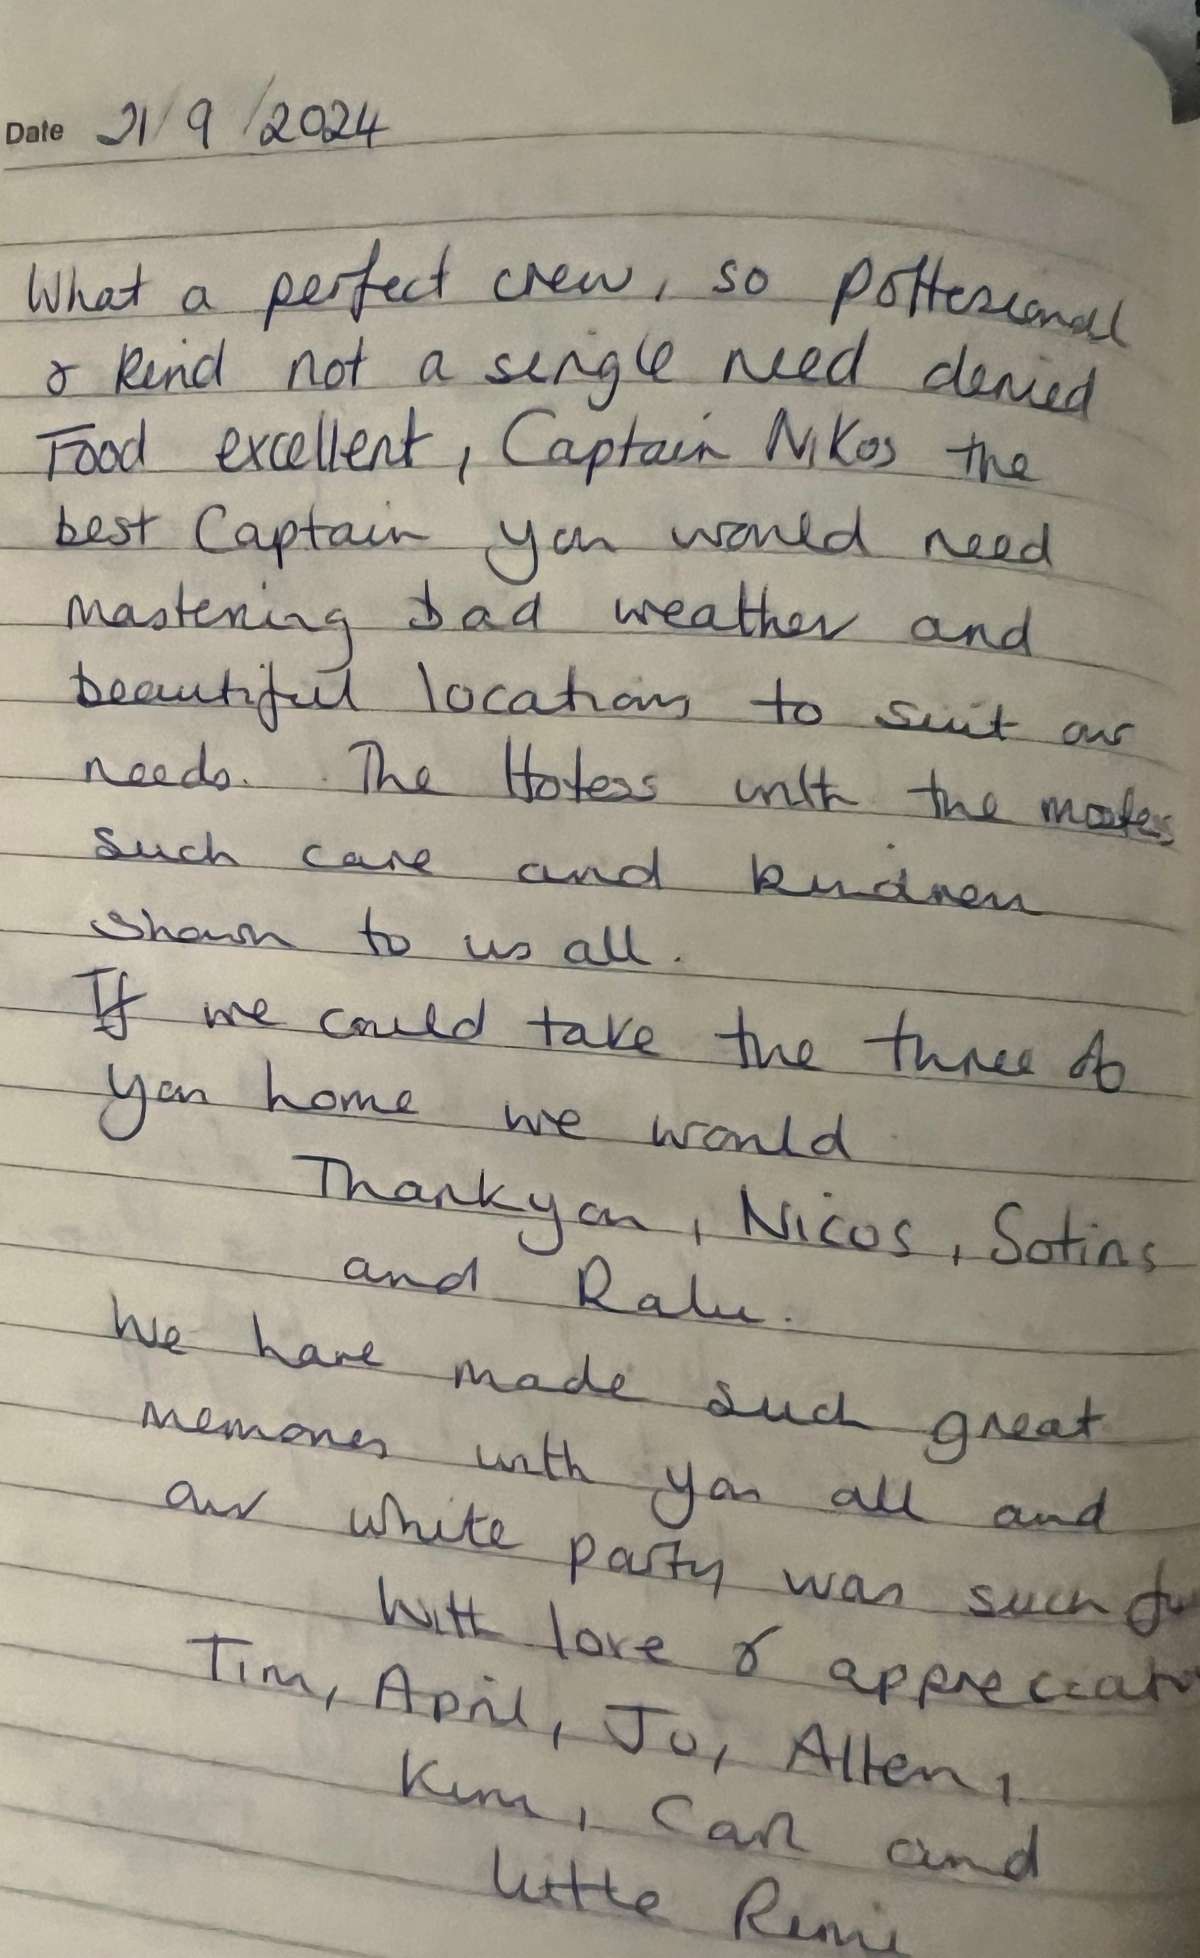 Date 21/9/2024
What a perfect crew, so poffessional
& kind not a single need denied
Food excellent, Captain Nikos the
best Captain you would need
mastering bad weather and
beautiful locations to suit our
needs. The Hotess with the mostes
such care and kindness
shown to us all.
If we could take the three of
you home we would
Thankyou, Nicos, Sotiris
and Ralu.
We have made such great
memories with you all and
our white party was such fu
With love & appreciatio
Tim, April, Jo, Allen,
Kim, Carl and
little Remi